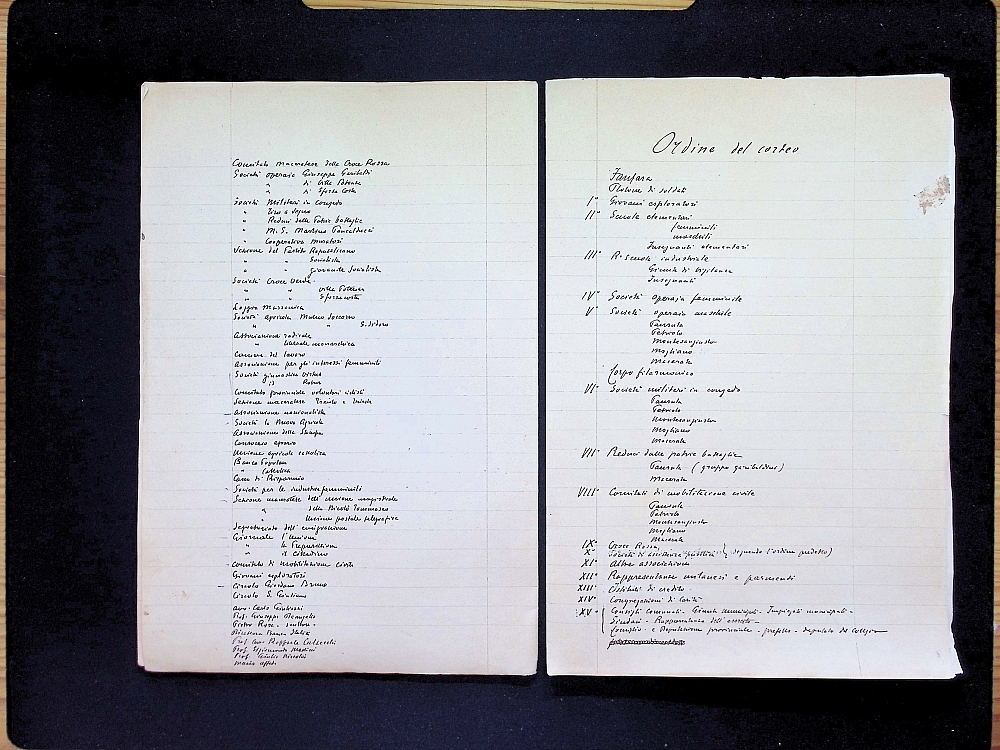 Comitato maceratese della Croce Rossa
Società operaia Giuseppe Garibaldi
" di Villa Potenza
" di Sforza Costa
Società Militari in congedo
" Tiro a segno
" Reduci delle Patrie battaglie
" M. S. Martino Pancalducci
" Cooperativa muratori
Sezione del Partito Repubblicano
" " Socialista
" " giovanile Socialista
Società Croce Verde
" " Villa Potenza
" " Sforzacosta
Loggia Massonica
Società agricola Mutuo Soccorso
" " " S. Isidoro
Associazione radicale
" liberale monarchica
Camera del lavoro
Associazione per gli interessi femminili
Società ginnastica Virtus
id Robur
Comitato provinciale volontari ciclisti
Sezione maceratese Trento e Trieste
Associazione nazionalista
Società la Nuova Agricola
Associazione della Stampa
Consorzio agrario
Unione agricola cattolica
Banca Popolare
" Cattolica
Cassa di Risparmio
Società per le industrie femminili
Sezione maceratese dell'unione magistrale
" della Nicolò Tommaseo
" Unione postale telegrafica
Segretariato dell'emigrazione
Giornale l'Unione
" la
" il Cittadino
Comitato di mobilitazione civile
Giovani esploratori
Circolo Giordano Bruno
Circolo S. Giuliano
avv. Carlo
Prof. Giuseppe
Pietro - scultore
Direzione Banca Italia
Prof. Raffaele
Prof.
Prof. Giulio
Mario
Ordine del corteo
Fanfara
Plotone di soldati
I° Giovani esploratori
II° Scuole elementari
femminili
maschili
Insegnanti elementari
III° R. Scuola industriale
Giunta di Vigilanza
Insegnanti
IV° Società operaja femminile
V° Società operaia maschile
Pausula
Petriolo
Montesangiusto
Mogliano
Macerata
Corpo filarmonico
VI° Società militari in congedo
Pausula
Petriolo
Montesangiusto
Mogliano
Macerata
VII° Reduci dalle patrie battaglie
Pausula (gruppo garibaldino)
Macerata
VIII° Comitati di mobilitazione civile
Pausula
Petriolo
Montesangiusto
Mogliano
Macerata
IX° Croce Rossa
X° Società di assistenza pubblica } secondo l'ordine predetto)
XI° Altre associazioni
XII° Rappresentanze milanesi e parmensi
XIII° Istituti di credito
XIV° Congregazioni di carità
XV° Consigli comunali - Giunte municipali - Impiegati municipali -
Sindaci - Rappresentanza dell'esercito -
Consiglio e Deputazione provinciale - prefetto - deputato del collegio